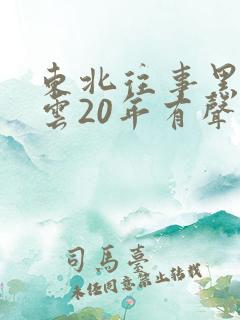 東北往事黑
雲20年有聲
司馬臺
未经同意禁止转载